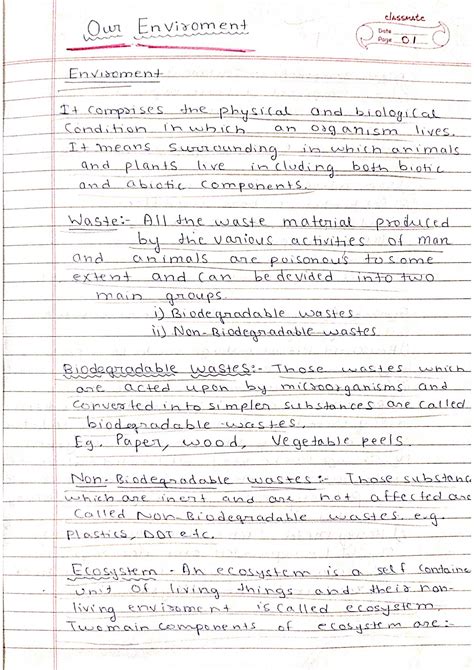 classmate
Date
Page 01
Our Enviroment
Enviroment
It comprises the physical and biological
Condition in which an organism lives.
It means surrounding in which animals
and plants live including both biotic
and abiotic components.
Waste:- All the waste material produced
by the various activities of man
and animals are poisonous to some
extent and can be devided into two
main groups.
i) Biodegradable wastes
ii) Non-Biodegradable wastes
Biodegradable wastes:- Those wastes which
are acted upon by microorganisms and
converted into simpler substances are called
biodegradable wastes.
Eg. Paper, wood, Vegetable peels.
Non-Biodegradable wastes:- Those substanc
which are inert and are not affected are
Called Non-Biodegradable wastes. e.g.
Plastics, DDT etc.
Ecosystem - An ecosystem is a self containe
unit of living things and their non-
living enviroment is called ecosystem.
Two main components of ecosystem are:-